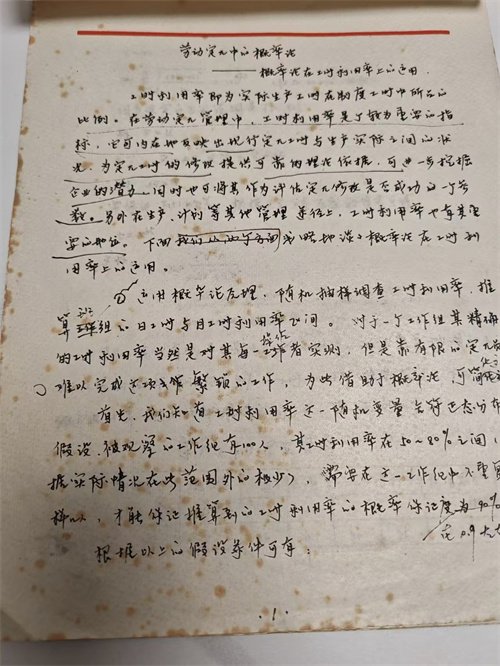 劳动定元中的概率论
——概率论在工时利用率上的运用
工时利用率即为实际生产工时在制度工时中所占的
比例。在劳动定元管理中，工时利用率是了较为重要的指
标，它可内在地反映出现行定元工时与生产实际之间的状
况，为定元工时的修改提供可靠的理论依据，可进一步挖掘
企业的潜力，同时也可将其作为评估定元修改是否成功的一个参
数。另外在生产、计划等其他管理系统上，工时利用率也有其重
要的地位。下面我们从两个方面浅略地谈了概率论在工时利
用率上的运用。
① 运用概率论原理，随机抽样调查工时利用率，推
算班组的日工时与日工时利用率区间。对于一个工作组其精确
的工时利用率当然是对其每一工作者实测，但是靠有限的定元
难以完成这项繁锁的工作，为此借助于概率论，可简
首先，我们知道工时利用率这一随机变量合符正态分布
假设被观察的工作组有100人，其工时利用率在50～80%之间，
据实际情况在此范围外的极少），需要在这一工作组中不重复
样 人，才能保证推算到的工时利用率的概率保证度为90%
在0.9
根据以上的假设条件可有：
·1·